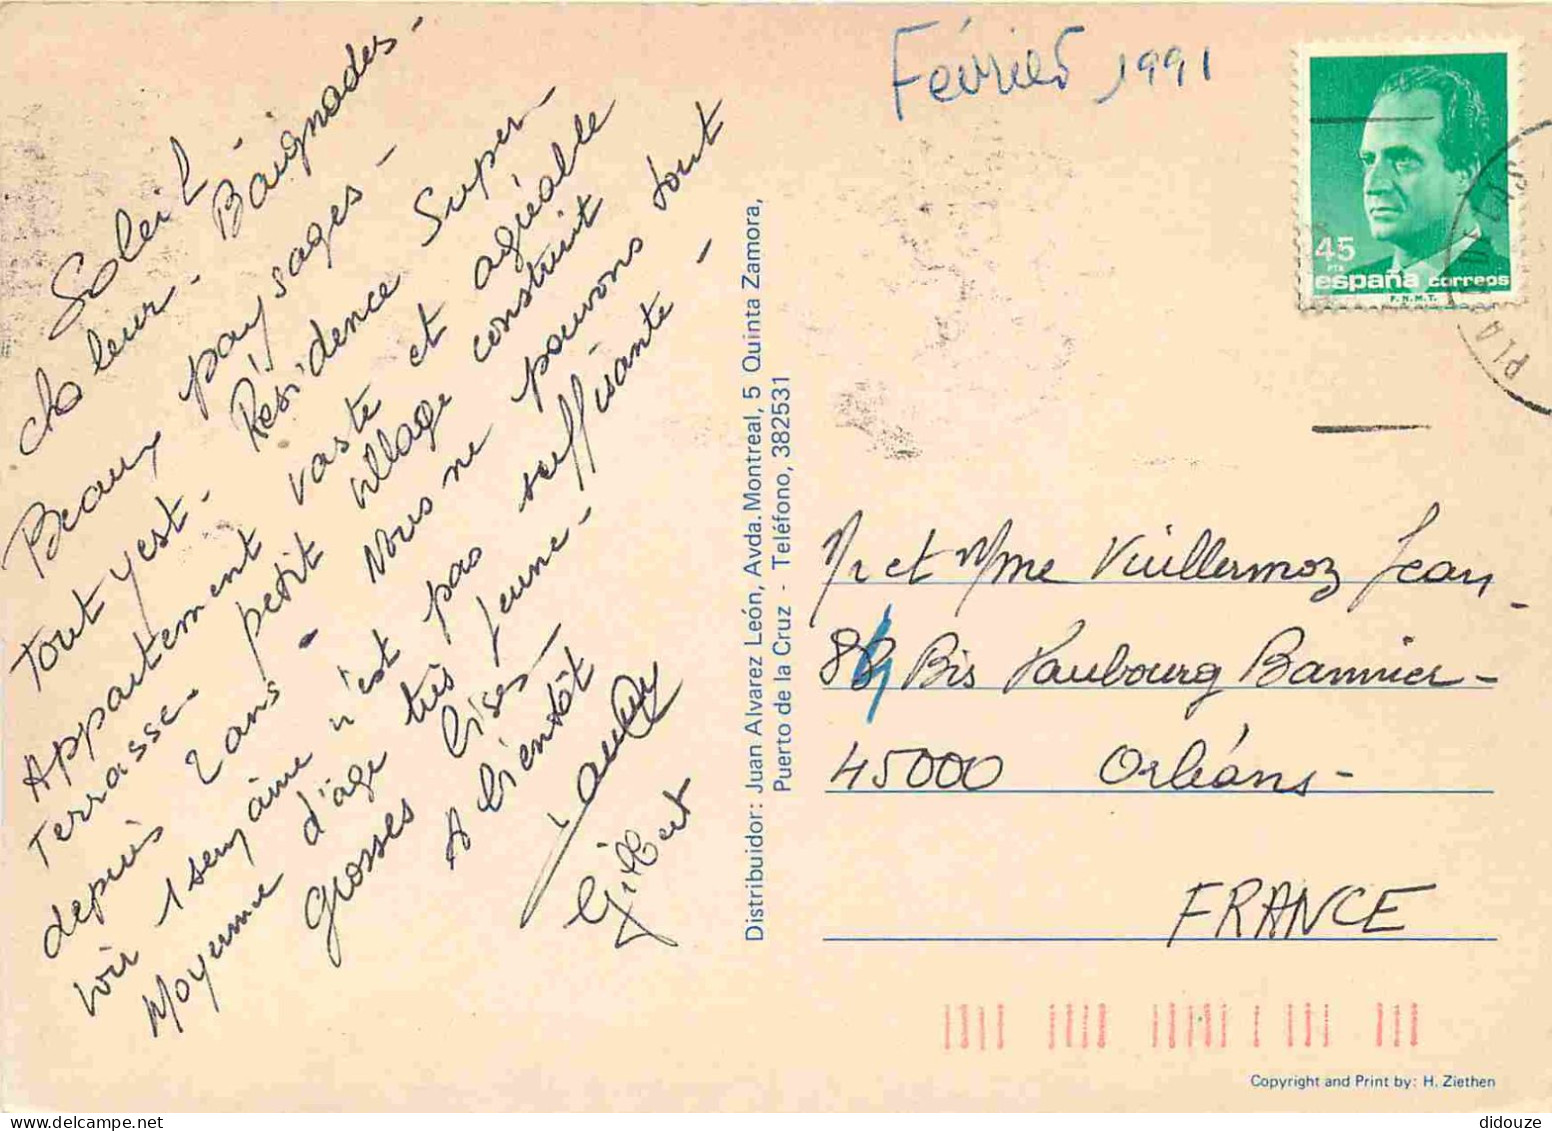 Février 1991
Soleil
chaleur - Baignades -
Beaux paysages -
tout y est - Résidence Super -
Appartement vaste et agréable
Terrasse - petit village construit
depuis 2 ans - Nous ne pouvons tout
voir 1 semaine n'est pas suffisante -
Moyenne d'âge très jeune -
grosses bises -
A bientôt
Gilbert
Distribuidor: Juan Alvarez León, Avda. Montreal, 5 Quinta Zamora,
Puerto de la Cruz - Teléfono, 382531
45
PTA
españa correos
F.N.M.T.
Mr et Mme Vuillermoz Jean -
Bis Faubourg Bannier -
45000 Orléans -
FRANCE
Copyright and Print by: H. Ziethen
didouze